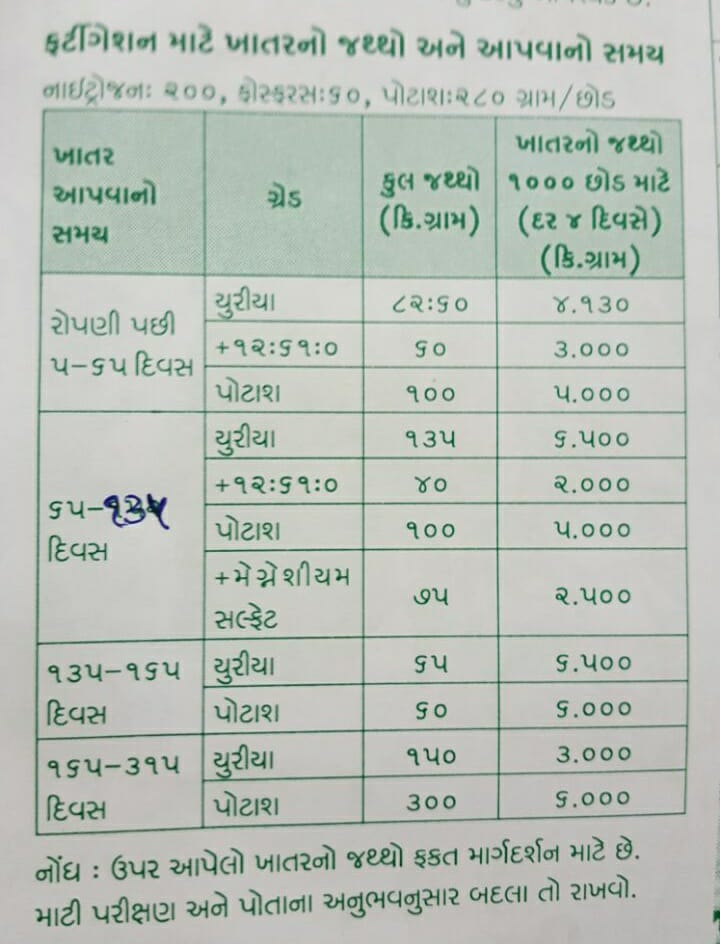 ફર્ટીગેશન માટે ખાતરનો જથ્થો અને આપવાનો સમય
નાઈટ્રોજન: ૨૦૦, ફોસ્ફરસ:૬૦, પોટાશ:૨૮૦ ગ્રામ/છોડ
ખાતર આપવાનો સમય | ગ્રેડ | કુલ જથ્થો (કિ.ગ્રામ) | ખાતરનો જથ્થો ૧૦૦૦ છોડ માટે (દર ૪ દિવસે) (કિ.ગ્રામ)
રોપણી પછી ૫-૬૫ દિવસ | યુરીયા | ૮૨:૬૦ | ૪.૧૩૦
+૧૨:૬૧:૦ | ૬૦ | ૩.૦૦૦
પોટાશ | ૧૦૦ | ૫.૦૦૦
૬૫-૧૩૫ દિવસ | યુરીયા | ૧૩૫ | ૬.૫૦૦
+૧૨:૬૧:૦ | ૪૦ | ૨.૦૦૦
પોટાશ | ૧૦૦ | ૫.૦૦૦
+મેગ્નેશીયમ સલ્ફેટ | ૭૫ | ૨.૫૦૦
૧૩૫-૧૬૫ દિવસ | યુરીયા | ૬૫ | ૬.૫૦૦
પોટાશ | ૬૦ | ૬.૦૦૦
૧૬૫-૩૧૫ દિવસ | યુરીયા | ૧૫૦ | ૩.૦૦૦
પોટાશ | ૩૦૦ | ૬.૦૦૦
નોંધ : ઉપર આપેલો ખાતરનો જથ્થો ફકત માર્ગદર્શન માટે છે.
માટી પરીક્ષણ અને પોતાના અનુભવનુસાર બદલા તો રાખવો.